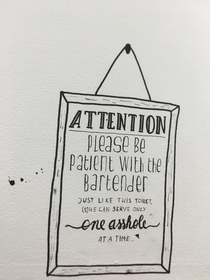 ATTENTION
Please Be
Patient With the
Bartender
JUST LIKE THIS TOILET,
(S)HE CAN SERVE ONLY
one asshole
AT A TIME...